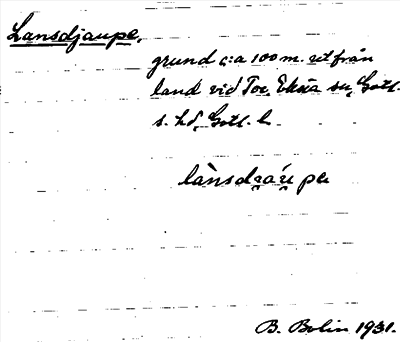 Lansdjaupe,
grund c:a 100 m. ut från
land vid Tor, Eksta sn, Gotl.
s. hd, Gotl. l.
B. Bolin 1931.